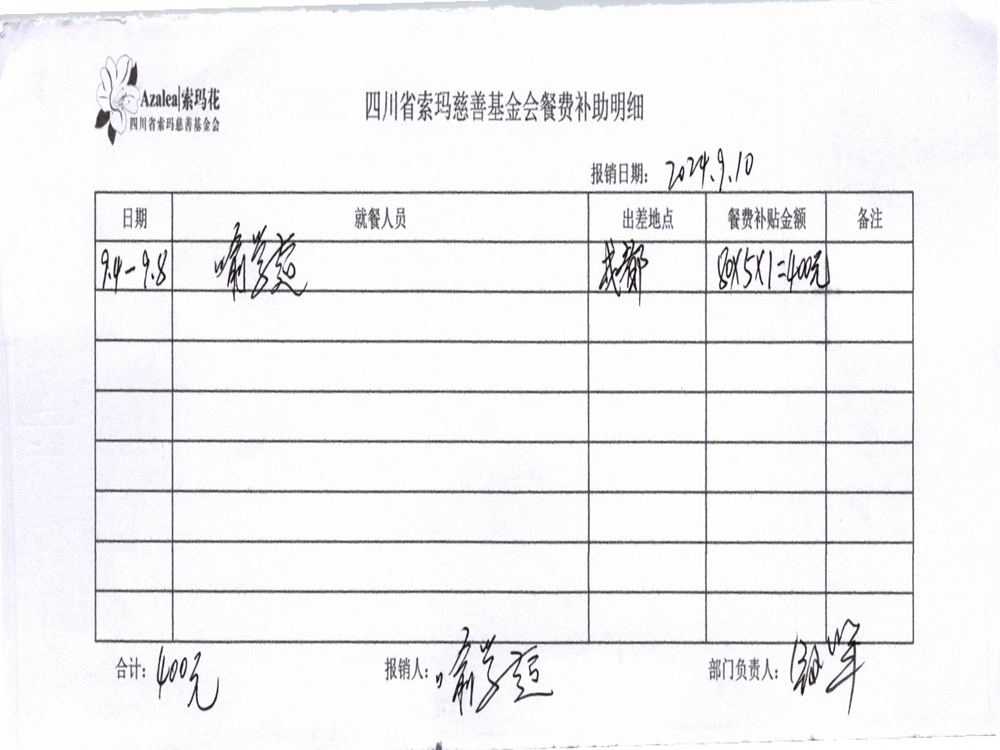 Azalea|索玛花
四川省索玛慈善基金会
四川省索玛慈善基金会餐费补助明细
报销日期: 2024.9.10
日期 就餐人员 出差地点 餐费补贴金额 备注
9.4-9.8 成都 80×5×1=400元
合计: 400元 报销人: 部门负责人: